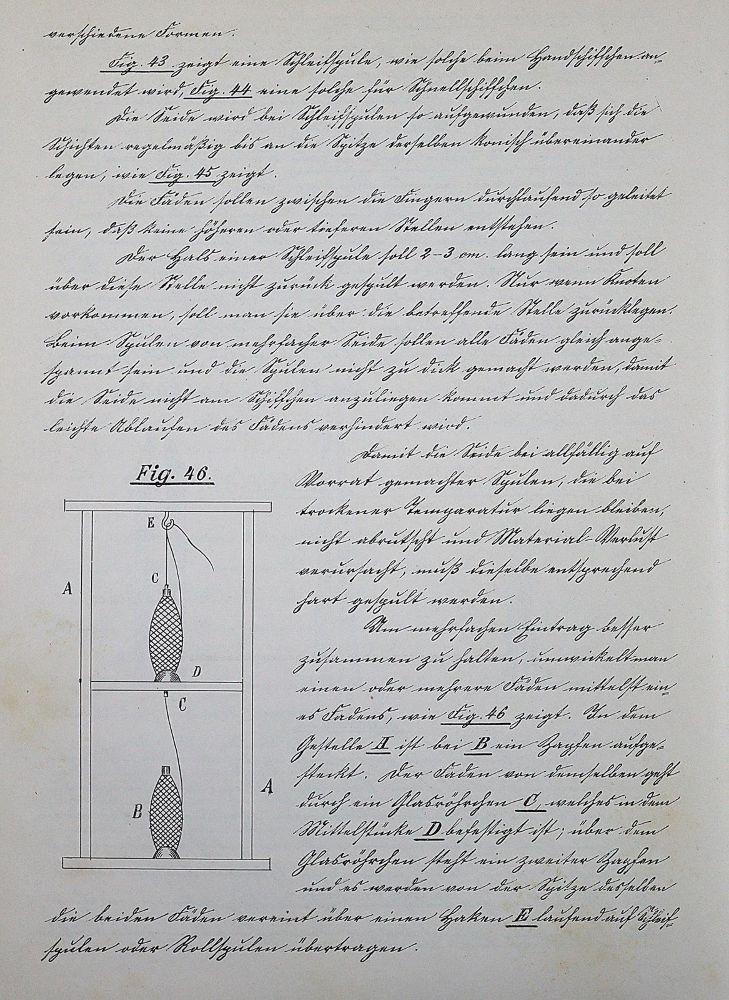 verschiedene Formen.
Fig. 43 zeigt eine Schleifspule, wie solche beim Handschiffchen an-
gewendet wird, Fig. 44 eine solche für Schnellschiffchen.
Die Seide wird bei Schleifspulen so aufgewunden, daß sich die
Schichten regelmäßig bis an die Spitze derselben konisch übereinander
legen, wie Fig. 45 zeigt.
Die Fäden sollen zwischen die Fingern durchlaufend so geleitet
sein, daß keine höheren oder tieferen Stellen entstehen.
Der Hals einer Schleifspule soll 2-3 cm. lang sein und soll
über diese Stelle nicht zurück gespult werden. Nur wenn Knoten
vorkommen, soll man sie über die betreffende Stelle zurücklegen.
Beim Spulen von mehrfacher Seide sollen alle Fäden gleich ange-
spannt sein und die Spulen nicht zu dick gemacht werden, damit
die Seide nicht am Schiffchen anzuliegen kommt und dadurch das
leichte Ablaufen des Fadens verhindert wird.
Damit die Seide bei allfällig auf
Vorrat gemachter Spulen, die bei
trockener Temparatur liegen bleiben,
nicht abrutscht und Material-Verlust
verursacht, muß dieselbe entsprechend
hart gespult werden.
Um mehrfachen Eintrag besser
zusammen zu halten, umwickelt man
einen oder mehrere Fäden mittelst ein-
es Fadens, wie Fig. 46 zeigt. In dem
Gestelle A ist bei B ein Zapfen aufge-
steckt. Der Faden von demselben geht
durch ein Glasröhrchen C, welches in dem
Mittelstücke D befestigt ist; über dem
Glasröhrchen steht ein zweiter Zapfen
und es werden von der Spitze desselben
die beiden Fäden vereint über einen Haken E laufend auf Schleif-
spulen oder Rollspulen übertragen.
Fig. 46.
E
A
C
D
C
A
B